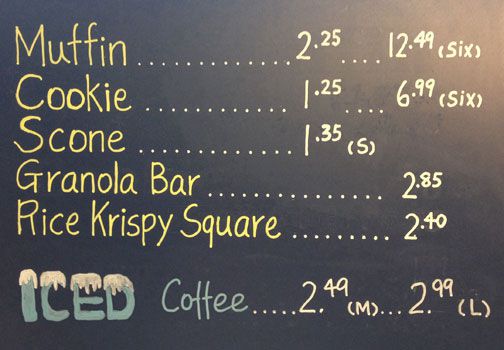 Muffin ............. 2.25 .... 12.49 (Six)
Cookie ............ 1.25 .... 6.99 (Six)
Scone ............. 1.35 (S)
Granola Bar ................ 2.85
Rice Krispy Square ......... 2.40
ICED Coffee ..... 2.49 (M) ... 2.99 (L)